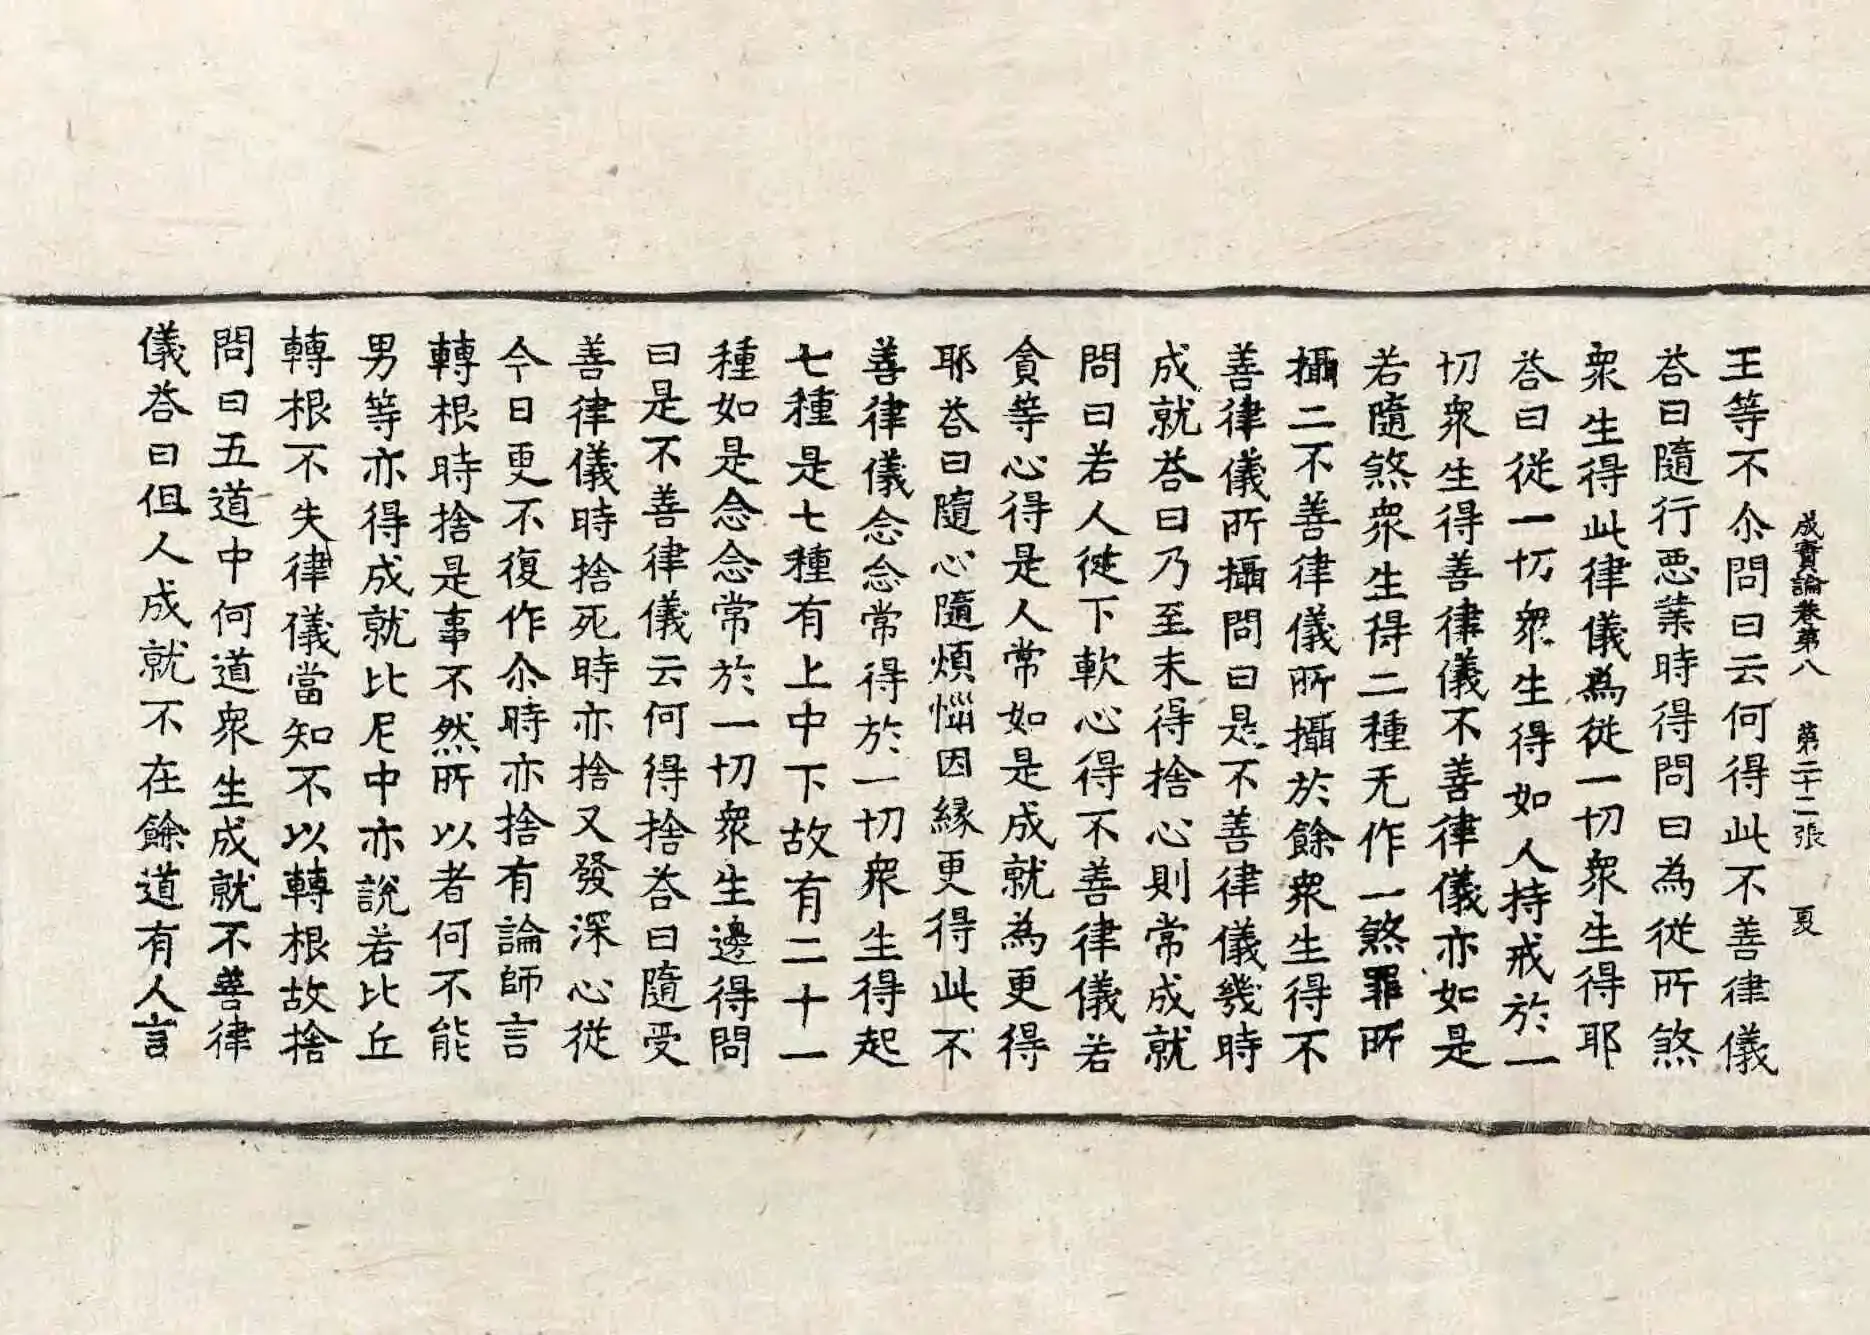 成實論卷第八　第二十二張　夏
王等不尒問曰云何得此不善律儀
荅曰隨行惡業時得問曰為從所煞
衆生得此律儀為從一切衆生得耶
荅曰從一切衆生得如人持戒於一
切衆生得善律儀不善律儀亦如是
若隨煞衆生得二種无作一煞罪所
攝二不善律儀所攝於餘衆生得不
善律儀所攝問曰是不善律儀幾時
成就荅曰乃至未得捨心則常成就
問曰若人從下軟心得不善律儀若
貪等心得是人常如是成就為更得
耶荅曰隨心隨煩惱因緣更得此不
善律儀念念常得於一切衆生得起
七種是七種有上中下故有二十一
種如是念念常於一切衆生邊得問
曰是不善律儀云何得捨荅曰隨受
善律儀時捨死時亦捨又發深心從
今日更不復作尒時亦捨有論師言
轉根時捨是事不然所以者何不能
男等亦得成就比尼中亦說若比丘
轉根不失律儀當知不以轉根故捨
問曰五道中何道衆生成就不善律
儀荅曰但人成就不在餘道有人言